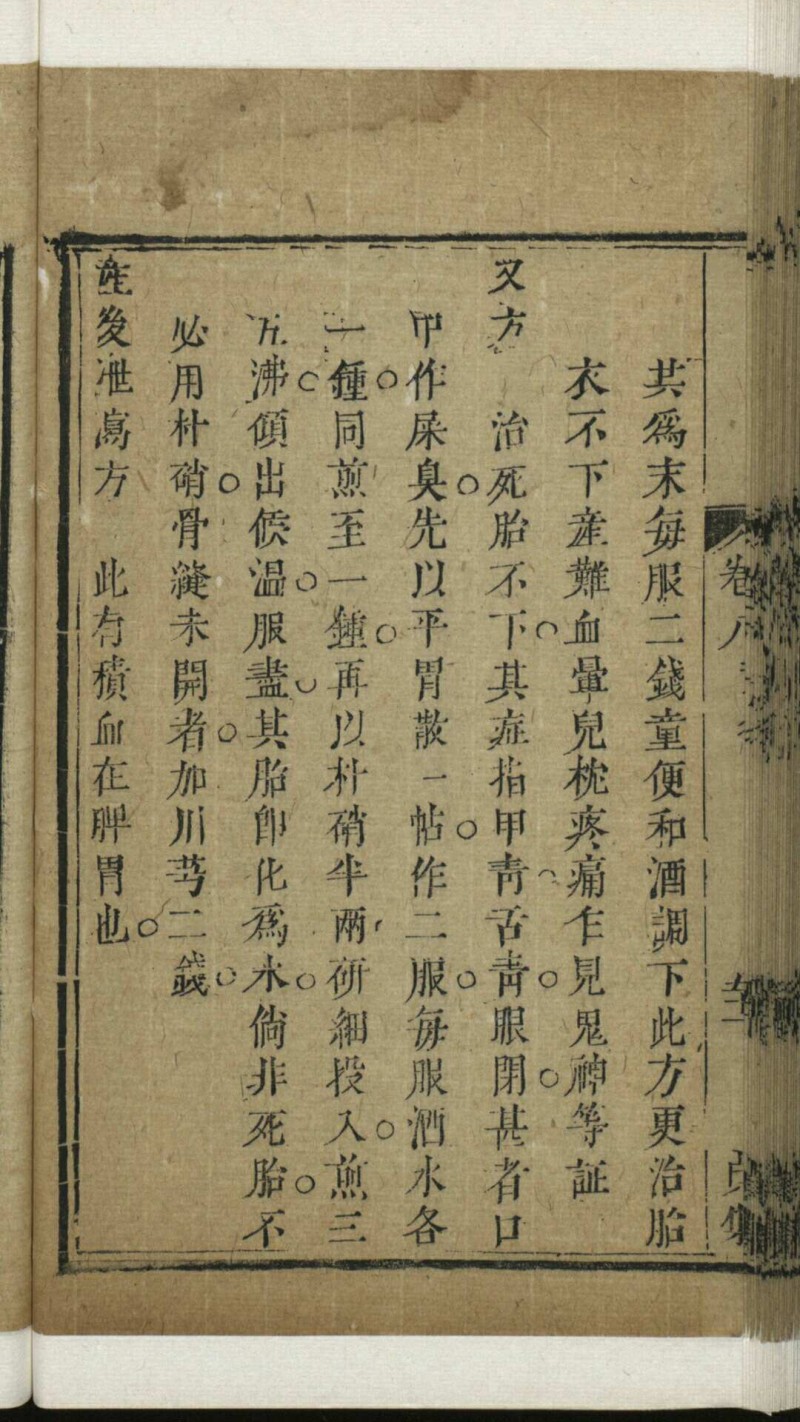 共爲末毎服二錢童便和酒調下此方更治胎
衣不下産難血暈兒枕疼痛乍見鬼神等証
又方　治死胎不下其症指甲靑舌靑眼閉甚者口
中作屎臭先以平胃散一帖作二服毎服酒水各
一鍾同煎至一鍾再以朴硝半兩硏細投入煎三
五沸傾出候温服盡其胎卽化爲水倘非死胎不
必用朴硝骨縫未開者加川芎二錢
産後泄瀉方　此有積血在脾胃也
卷八